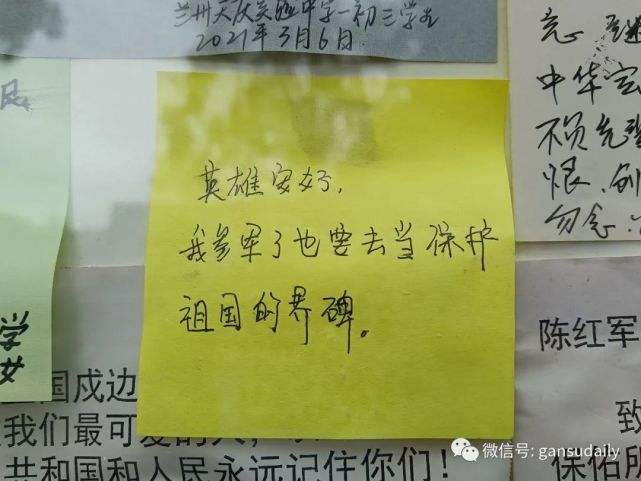 兰州天庆实验中学一初三学生
2021年3月6日
英雄安好,
我参军了也要去当保护
祖国的界碑。
中华
不负先
恨,
勿念:
学
女
陈红军
国戍边
我们最可爱的人,
共和国和人民永远记住你们!
致
保佑所
微信号: gansudaily